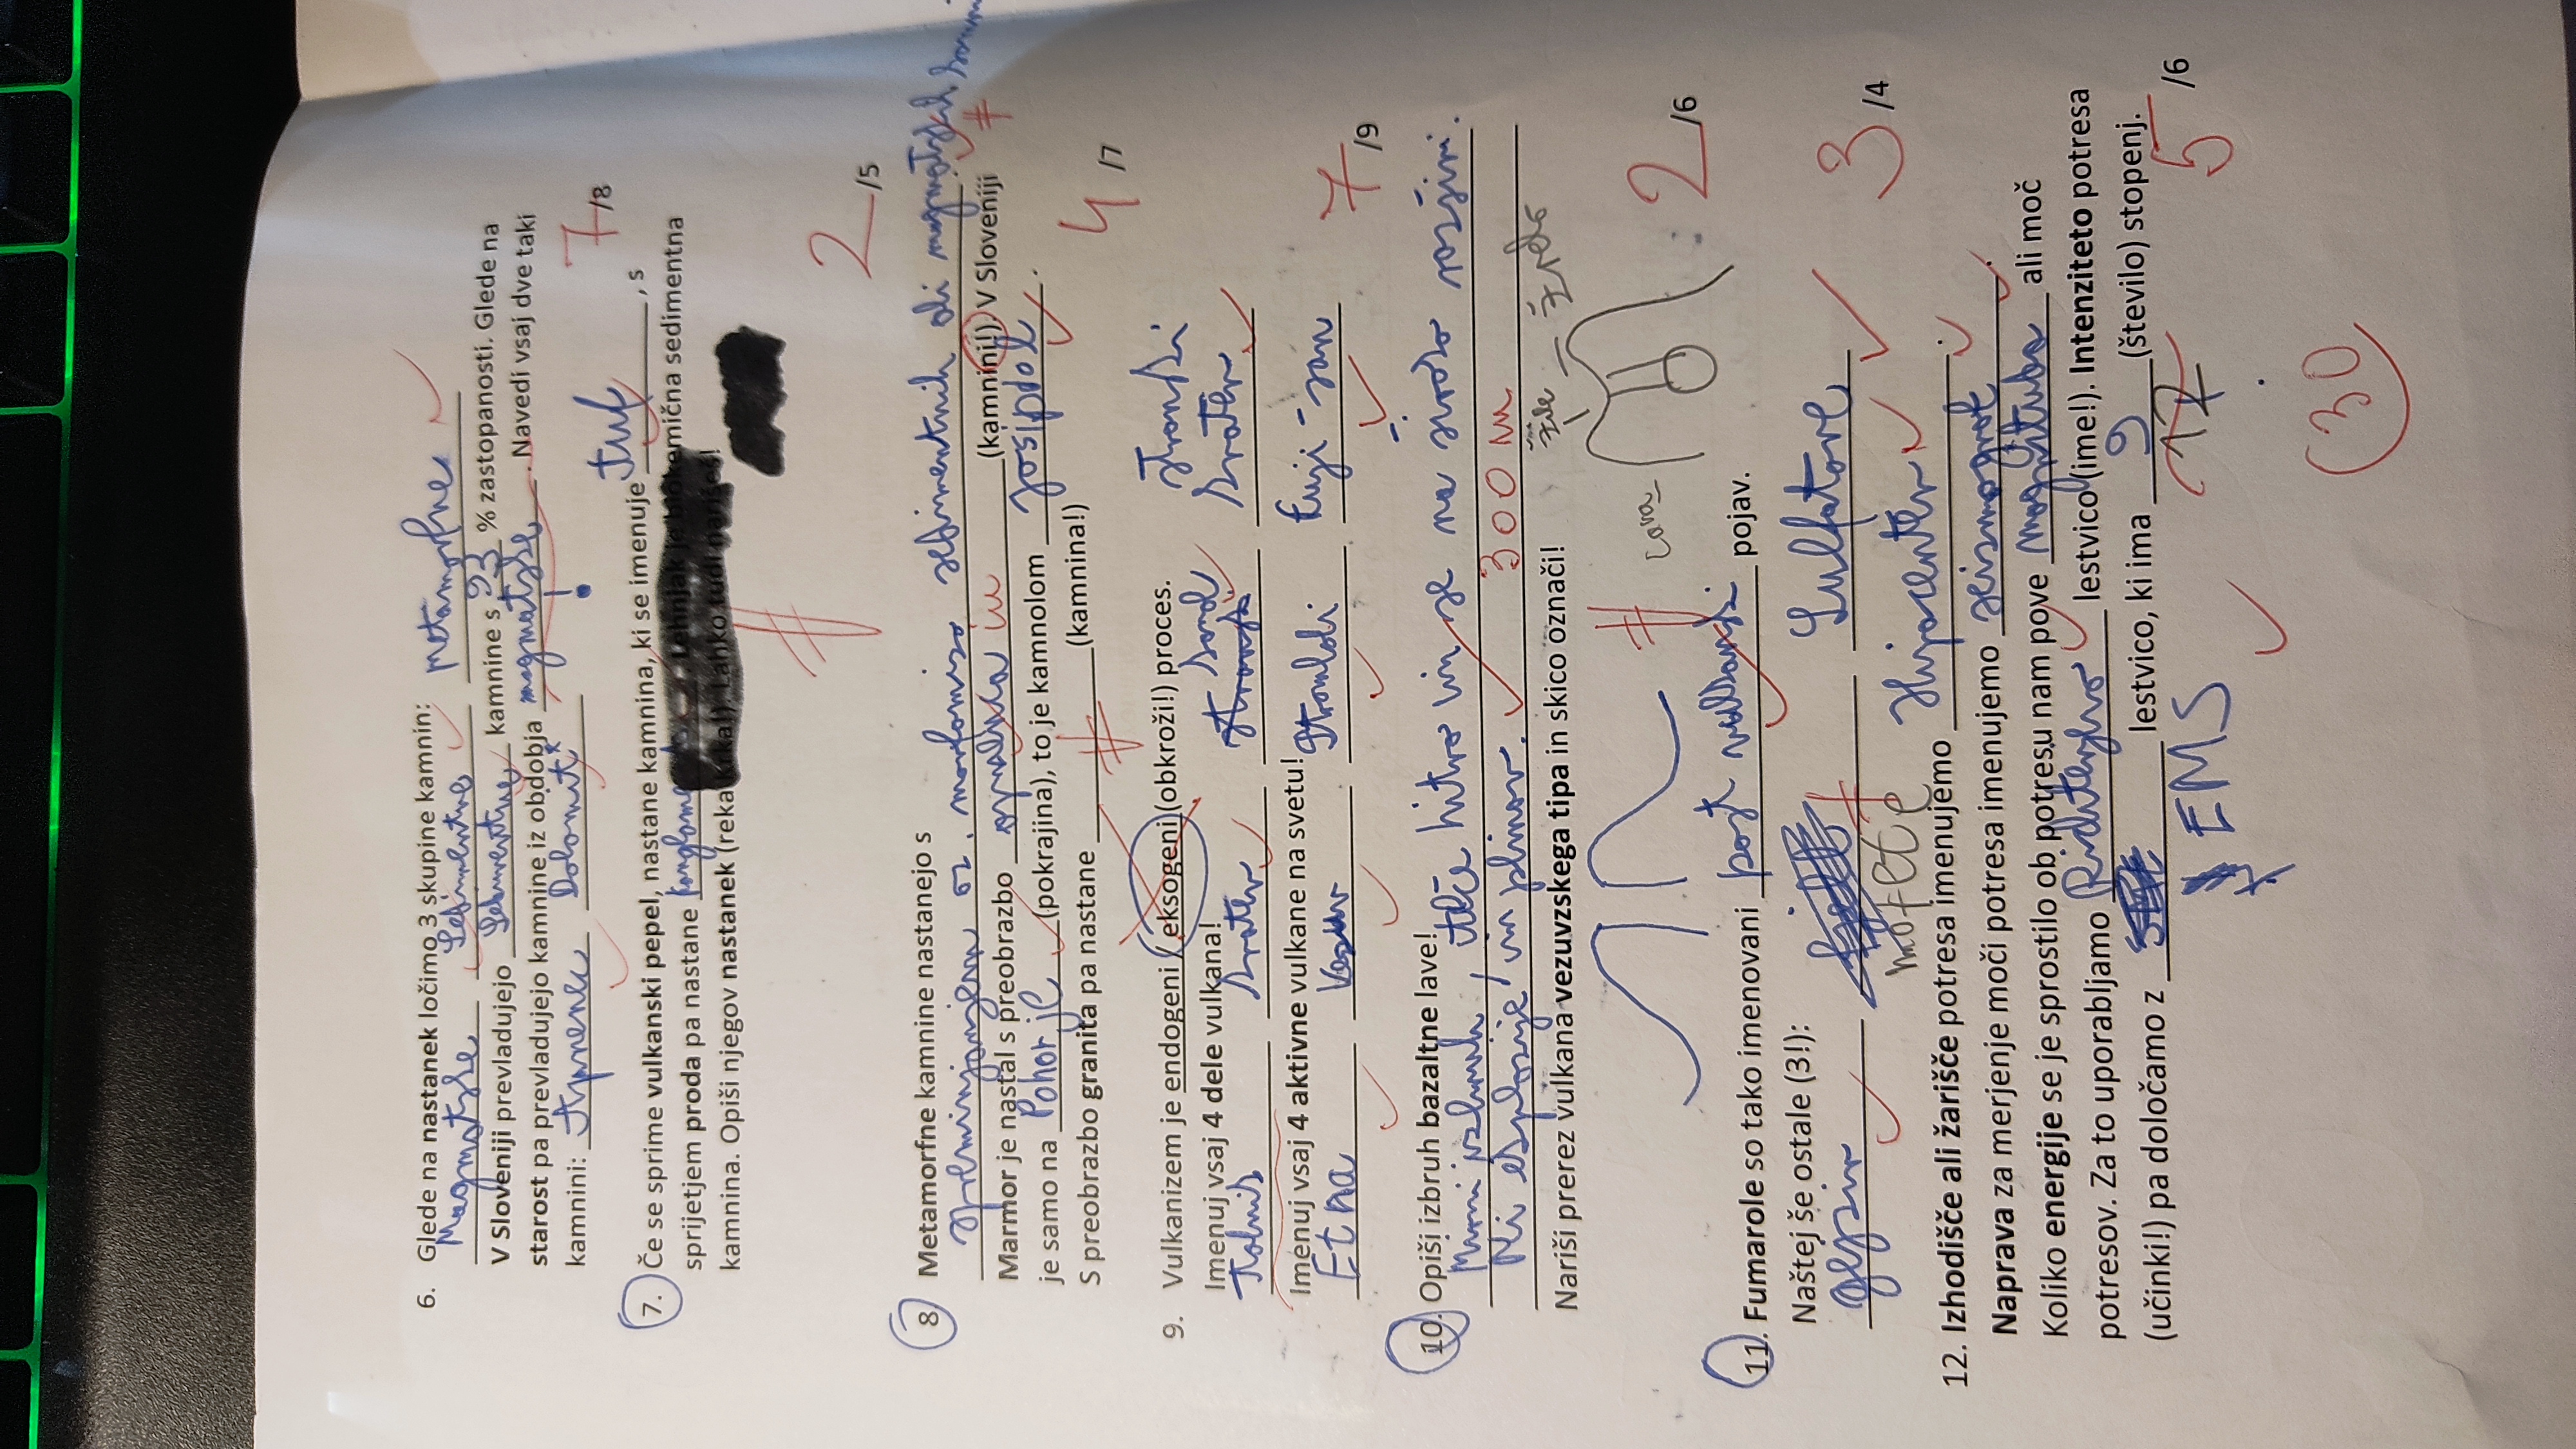 6. Glede na nastanek ločimo 3 skupine kamnin:
Magmatske Sedimentne Metamorfne
V Sloveniji prevladujejo Sedimentne kamnine s 93 % zastopanosti. Glede na
starost pa prevladujejo kamnine iz obdobja magmatske. Navedi vsaj dve taki
kamnini: Apnenec Dolomit
!
7/8
7. Če se sprime vulkanski pepel, nastane kamnina, ki se imenuje tuf, s
sprijetjem proda pa nastane konglome . Lehnjak je biokemična sedimentna
kamnina. Opiši njegov nastanek (reka Krka!). Lahko tudi narišeš!
2/5
8. Metamorfne kamnine nastanejo s
spreminjanjem oz. morfomizo sedimentnih ali magmatskih
Marmor je nastal s preobrazbo (kamnini!). V Sloveniji
je samo na Pohorje (pokrajina), to je kamnolom Josipdol.
S preobrazbo granita pa nastane (kamnina!)
4/7
9. Vulkanizem je endogeni / eksogeni (obkroži!) proces.
Imenuj vsaj 4 dele vulkana!
stranski
Kolnik krater krater
Imenuj vsaj 4 aktivne vulkane na svetu!
Etna Vezuv Stromboli Fuji-san
7/9
10. Opiši izbruh bazaltne lave!
Mirni izbruh, teče hitro in se na široko razširi.
Ni eksplozije in plinov. 300 m
Nariši prerez vulkana vezuvzskega tipa in skico označi!
žile žrelo
Lava
2/6
11. Fumarole so tako imenovani post vulkanski pojav.
Naštej še ostale (3!):
gejzir Sulfatare
mofete
3/4
12. Izhodišče ali žarišče potresa imenujemo Hipocenter.
Naprava za merjenje moči potresa imenujemo seizmograf.
Koliko energije se je sprostilo ob potresu nam pove magnituda ali moč
potresov. Za to uporabljamo Richterjevo lestvico (ime!). Intenziteto potresa
(učinki!) pa določamo z lestvico, ki ima 9 (število) stopenj.
EMS 12
5/6
30